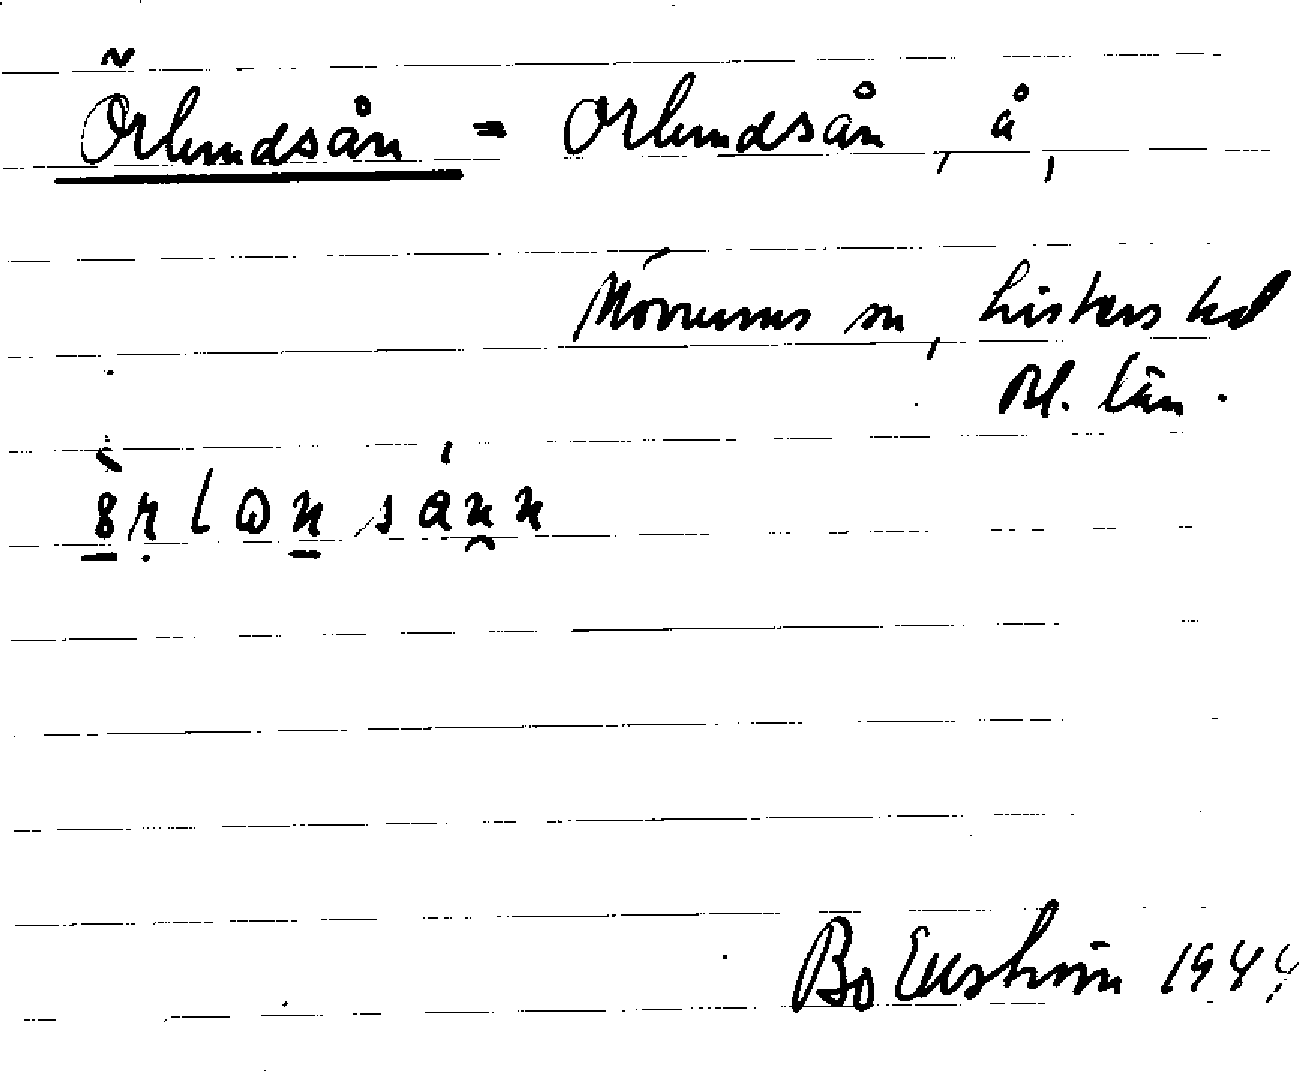 Örlundsån = Orlundsån, å,
Mörrums sn, Listers hd
Bl. län.
Bo Ekström 1944